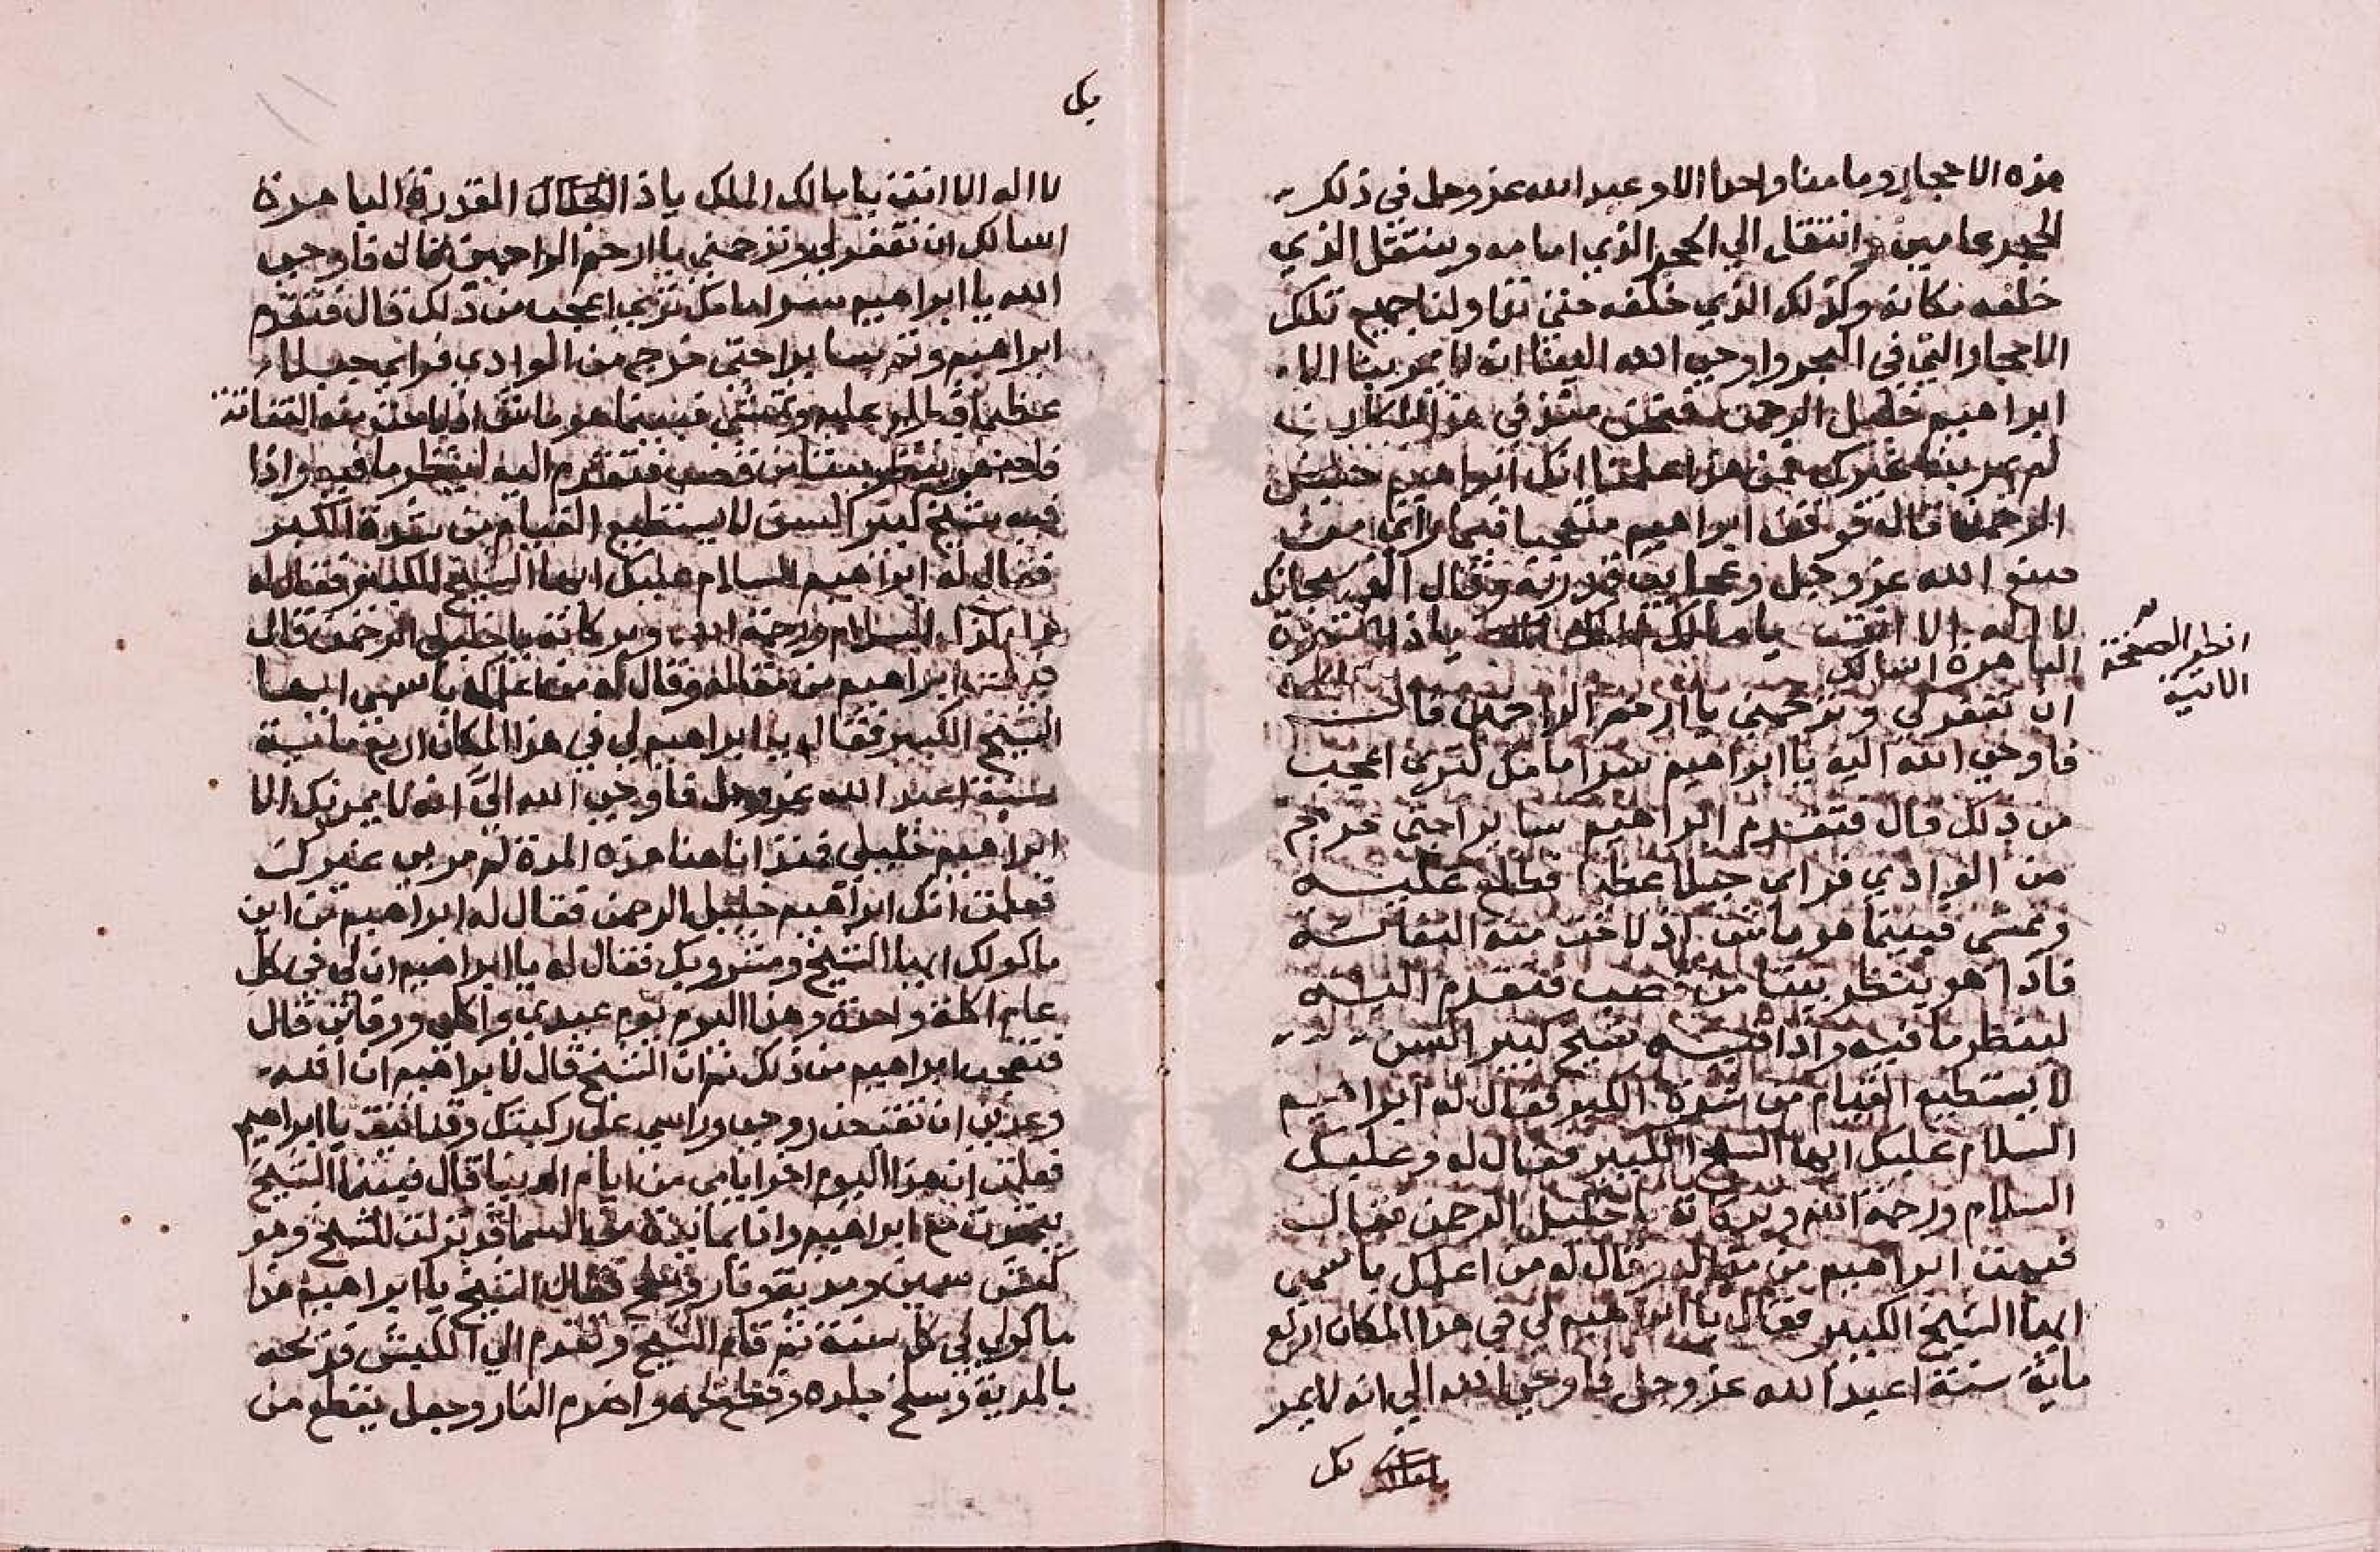 هذه الاحجار وما منا واحدا الا وعبد الله عز وجل في ذلك
الحجر عامين و انتقل الي الحجر الذي امامه وينتقل الذي
خلفه مكانه وكذلك الذي خلفه حتى تناولنا جميع تلك
الاحجار التي في البحر واوحي الله الينا انه لا يمر بنا الا
ابراهيم خليل الرحمن فنحن منذ في هذا المكان
لم يمر بنا غيرك فمن هذا علمنا انك ابراهيم خليل
الرحمن قال فوقف ابراهيم متعجبا فيما راي من
صنع الله عز وجل وعجايب قدرته وقال الهي سبحانك
لا اله الا انت يا مالك الملك ياذا القدرة
الباهرة اسالك
ان تغفر لي وترحمني يا ارحم الراحمين قال
فاوحي الله اليه يا ابراهيم سر امامك لترى اعجب
من ذلك قال فتقدم ابراهيم سايرا حتى خرج
من الوادي فراي جبلا عظيما فطلع عليه
وتمشي فبينما هو ماشي اذ لاحت منه التفاتة
فاذا هو ينظر بيتا من قصب فتقدم اليه
لينظر ما فيه واذا فيه شيخ كبير السن
لا يستطيع القيام من شدة الكبر فقال له ابراهيم
السلام عليك ايها الشيخ الكبير فقال له وعليك
السلام ورحمة الله وبركاته يا خليل الرحمن فقال
فبهت ابراهيم من مقاله وقال له من اعلمك باسمي
ايها الشيخ الكبير فقال يا ابراهيم لي في هذا المكان اربع
ماية سنة اعبد الله عز وجل فاوحي الله الي انه لا يمر
بك
انظر الصفحة
الاتية
بك
لا اله الا انت يا مالك الملك ياذا الجلال القدرة الباهرة
اسالك ان تغفر لي وترحمني يا ارحم الراحمين قال فاوحي
الله يا ابراهيم سر امامك ترى اعجب من ذلك قال فتقدم
ابراهيم ولم يسايرا حتى خرج من الوادي فراي جبلا
عظيما فطلع عليه وتمشي فبينما هو ماشي اذ لاحت منه التفاتة
فاذا هو ينظر بيتا من قصب فتقدم اليه لينظر ما فيه واذا
فيه شيخ كبير السن لا يستطيع القيام من شدة الكبر
فقال له ابراهيم السلام عليك ايها الشيخ الكبير فقال له
السلام ورحمة الله وبركاته يا خليل الرحمن قال
فبهت ابراهيم من مقاله وقال له من اعلمك باسمي ايها
الشيخ الكبير فقال يا ابراهيم لي في هذا المكان اربع ماية
سنة اعبد الله عز وجل فاوحي الله اليَّ انه لا يمر بك الا
ابراهيم خليلي فمنذ انا هنا هذه المدة لم مر بي غيرك
فعلمت انك ابراهيم خليل الرحمن فقال له ابراهيم من اين
ماكولك ايها الشيخ ومشروبك فقال له يا ابراهيم ان لي في كل
عام اكلة واحدة وهذا اليوم يوم عيدي واكلي ورقاتي قال
فتعجب ابراهيم من ذلك ثم ان الشيخ قال لابراهيم ان الله
وعدني ان تقبض روحي وراسي على ركبتك وقد اتيت يا ابراهيم
فعلمت ان هذا اليوم اخر ايامي من ايام الدنيا قال فبينما الشيخ
يتحدث مع ابراهيم واذا بمايدة من السما قد نزلت للشيخ وهو
كبش سمين ومديه ونار وملح فقال الشيخ يا ابراهيم هذا
ماكولي في كل سنة ثم قام الشيخ وتقدم الي الكبش فذبحه
بالمدية وسلخ جلده وقطع لحمه واضرم النار وجعل يقطع من